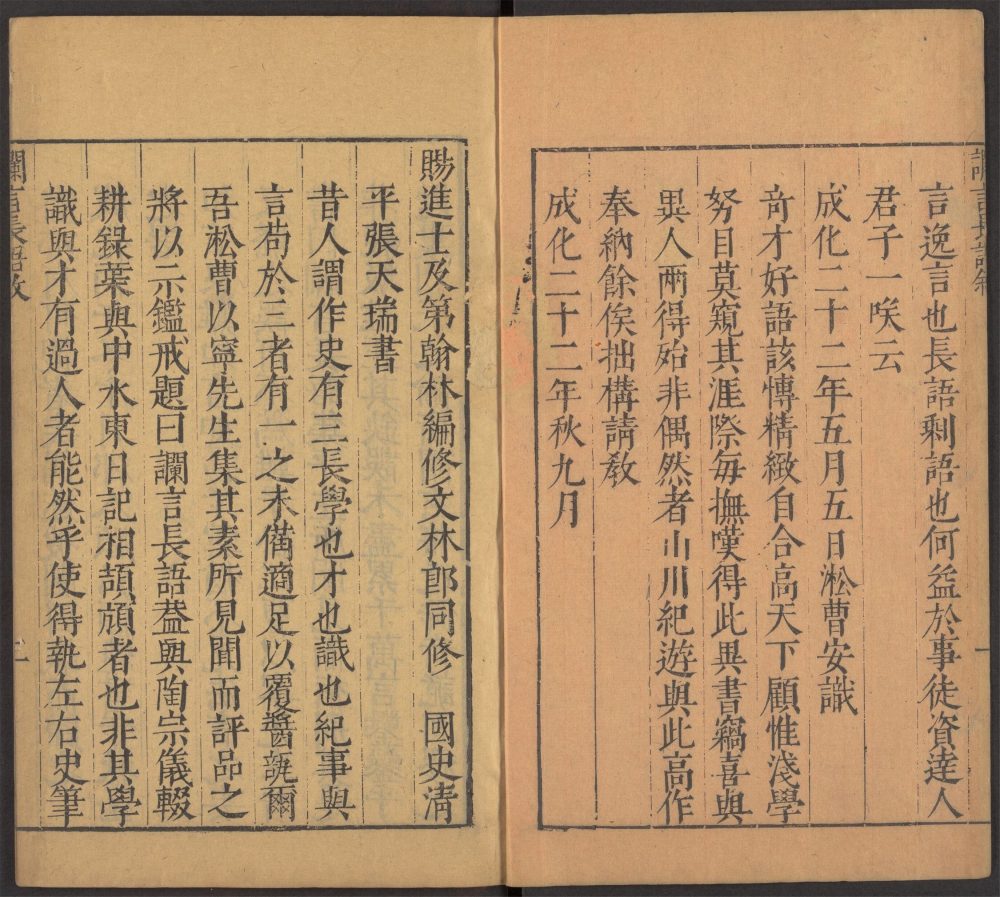 言逸言也長語剩語也何益於事徒資達人
君子一咲云
成化二十二年五月五日淞曹安識
竒才好語該博精緻自合高天下顧惟淺學
努目莫窺其涯際毎撫嘆得此異書竊喜與
異人兩得殆非偶然者山川紀遊與此高作
奉納餘俟拙構請教
成化二十二年秋九月
賜進士及第翰林編修文林郎同修 國史清
平張天瑞書
昔人謂作史有三長學也才也識也紀事與
言苟於三者有一之未備適足以覆醬瓿爾
吾淞曹以寧先生集其素所見聞而評品之
將以示鑑戒題曰讕言長語葢與陶宗儀輟
耕錄葉與中水東日記相頡頏者也非其學
識與才有過人者能然乎使得執左右史筆
讕言長語敘
二